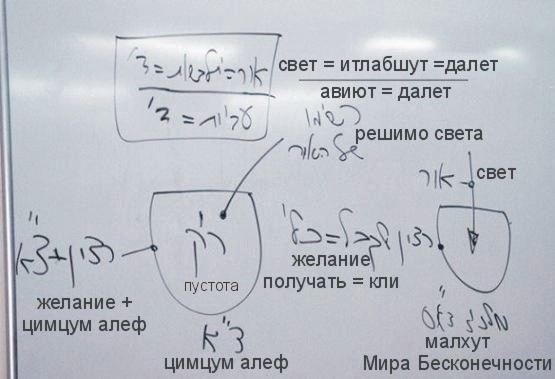 אור=התלבשות=ד'
свет = итлабшут =далет
עביות = ד'
авиют = далет
רשימו
של האור
решимо света
אור
свет
רצון + צ"א
ריק
רצון לקבל=כלי
желание +
цимцум алеф
пустота
желание
получать = кли
צ"א
цимцум алеф
מלכות דא"ס
малхут
Мира Бесконечности